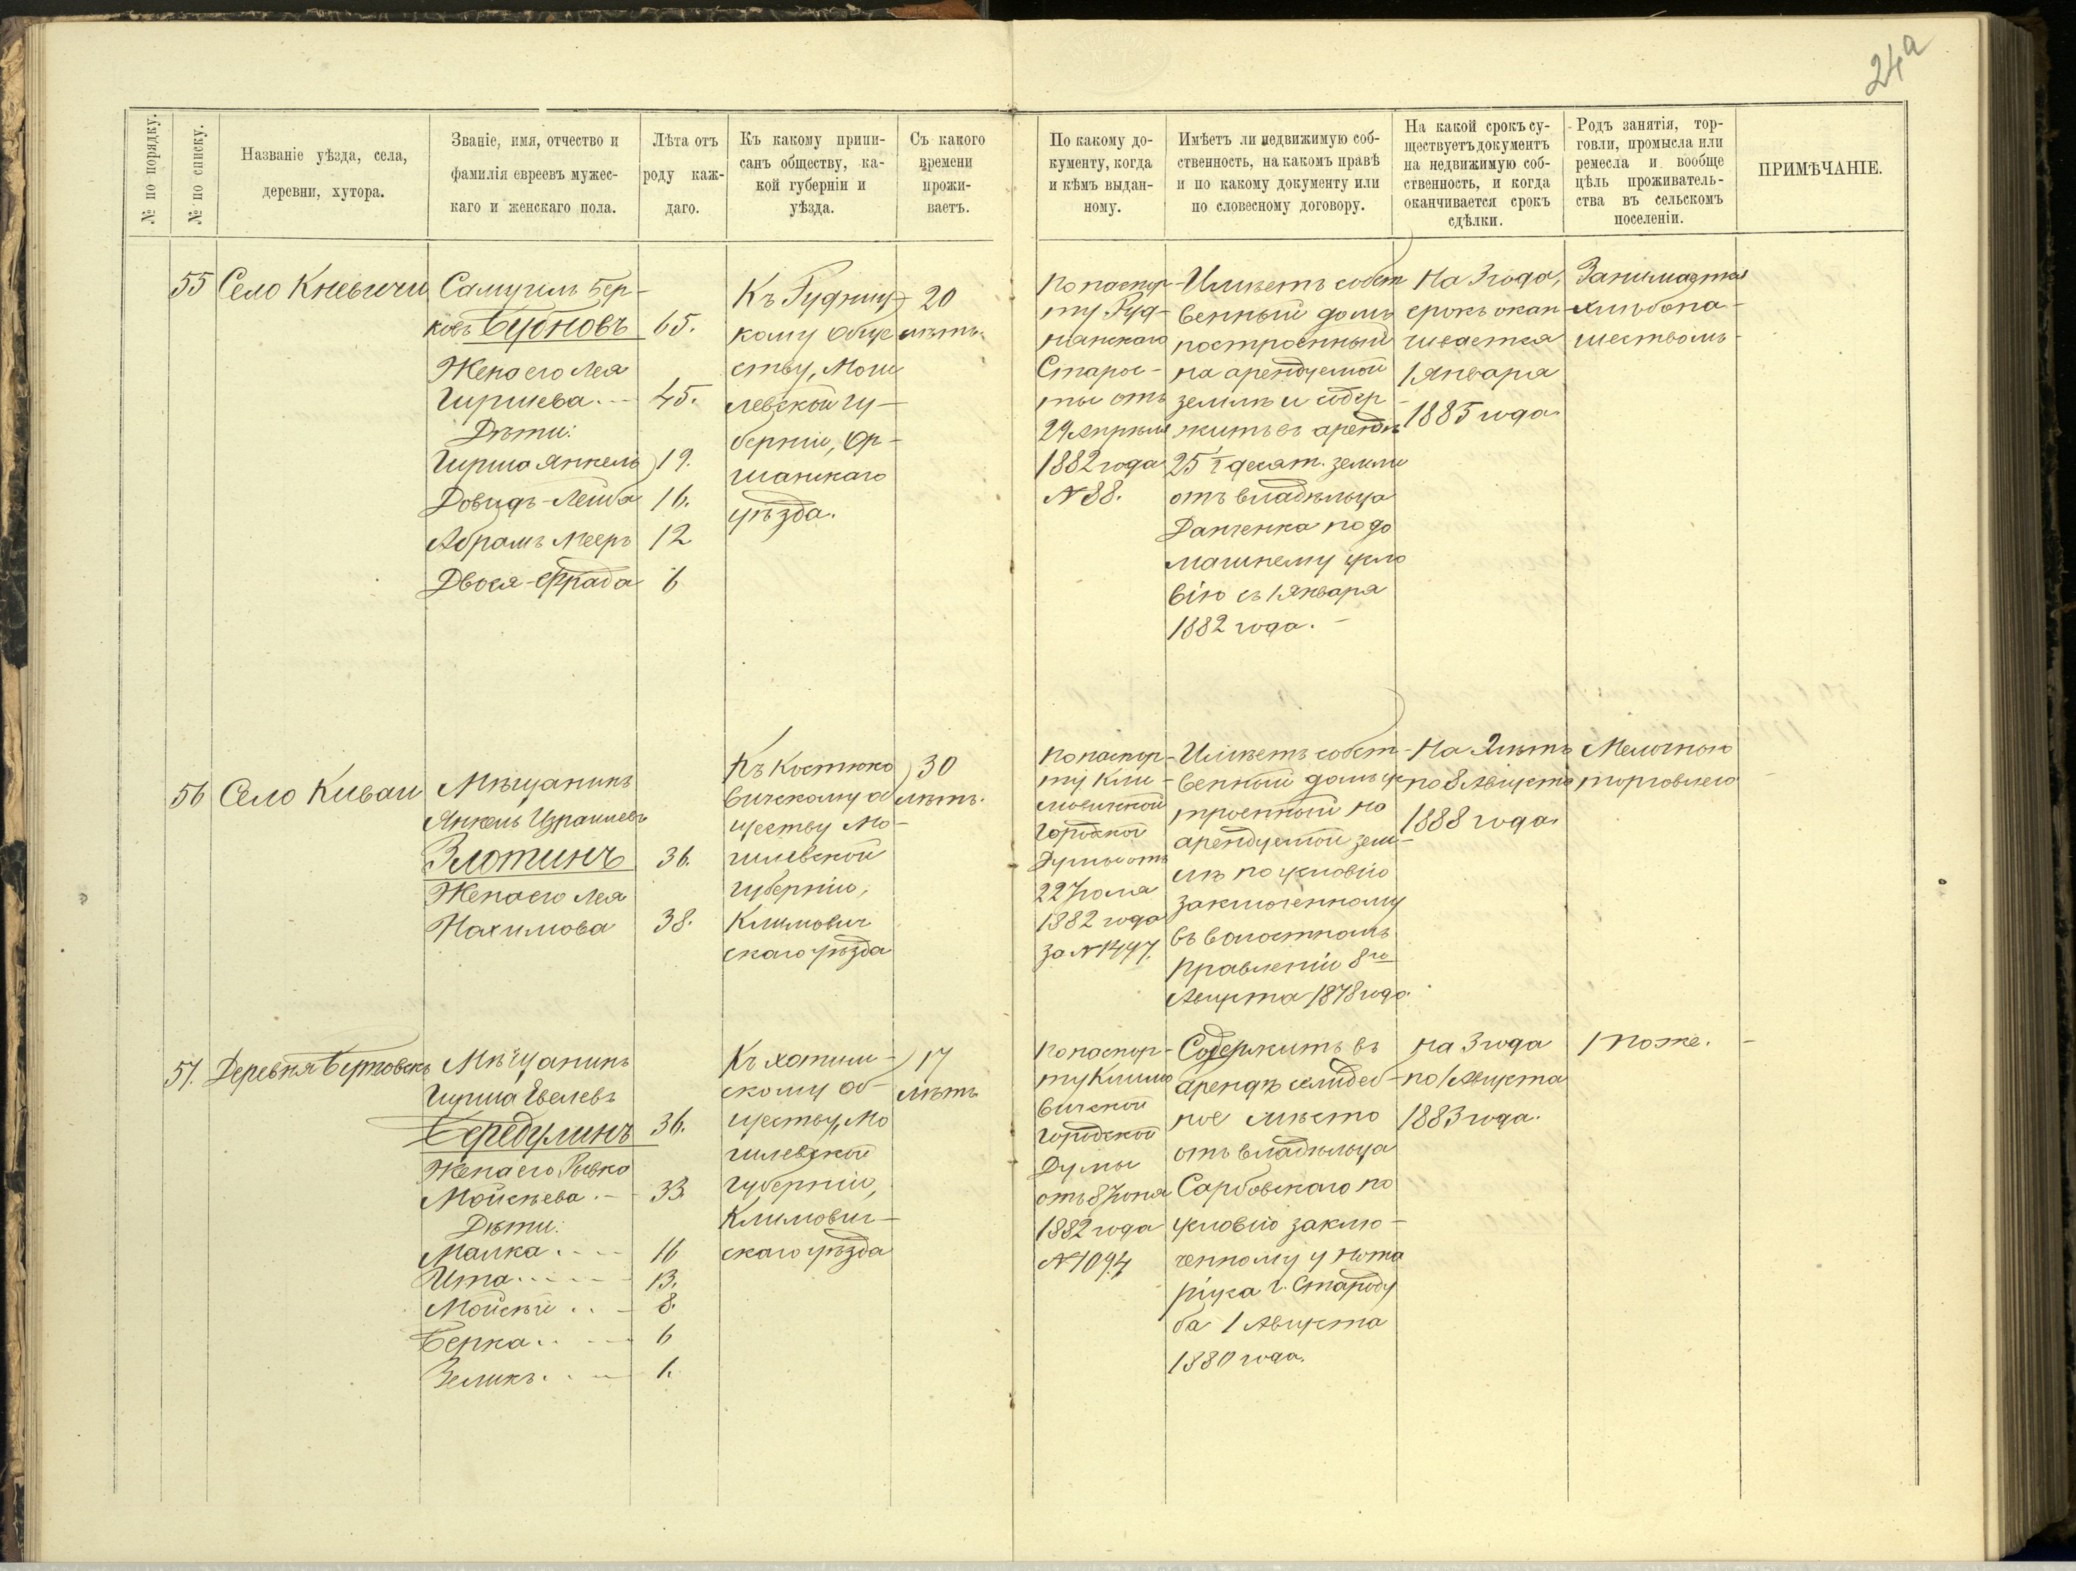 24а
№ по порядку.
№ по списку.
Названіе уѣзда, села,
деревни, хутора.
Званіе, имя, отчество и
фамилія евреевъ мужес-
каго и женскаго пола.
Лѣта отъ
роду каж-
даго.
Къ какому припи-
санъ обществу, ка-
кой губерніи и
уѣзда.
Съ какого
времени
прожи-
ваетъ.
По какому до-
кументу, когда
и кѣмъ выдан-
ному.
Имѣетъ ли недвижимую соб-
ственность, на какомъ правѣ
и по какому документу или
по словесному договору.
На какой срокъ су-
ществуетъ документъ
на недвижимую соб-
ственность, и когда
оканчивается срокъ
сдѣлки.
Родъ занятія, тор-
говли, промысла или
ремесла и вообще
цѣль проживатель-
ства въ сельскомъ
поселеніи.
ПРИМѢЧАНІЕ.
55
Село Княвичи
Самуилъ Бер-
ковъ Бубновъ
65.
Жена его Лея
Гиршева. —
45.
Дѣти:
Гирша Янкель
19.
Довидъ-Лейба
16.
Абрамъ Мееръ
12
Двося-Фрада
6
Къ Рудниц-
кому обще
ству, Моги
левской гу-
берніи, Ор-
шанскаго
уѣзда.
20
лѣтъ.
По паспор-
ту Руд-
нянскаго
Старос-
ты отъ
29 Апрѣля
1882 года
№ 88.
Имѣетъ собст
венный домъ
построенный
на арендуемой
землѣ и содер-
житъ въ арендѣ
25 ½ десят. земли
отъ владѣльца
Данченка по до
машнему усло
вію съ 1 Января
1882 года. —
На 3 года,
срокъ окан-
чивается
1 Января
1885 года
Занимается
хлѣбопа-
шествомъ
56
Село Киваи
Мѣщанинъ
Янкель Израилевъ
Злотинъ
36.
Жена его Лея
Нахимова
38.
Къ Костюко
вичскому об
ществу Мо-
гилевской
губерніи,
Климович
скаго уѣзда
30
лѣтъ.
По паспор-
ту Кли-
мовичской
Городской
Думы отъ
22 Іюля
1882 года
за № 1497.
Имѣетъ собст-
венный домъ ус
троенный на
арендуемой зем-
лѣ по условію
заключенному
въ волостномъ
Правленіи 8го
Августа 1878 года.
по 8 Августа
1888 года
Мелочною
торговлею
57.
Мѣщанинъ
Гирша Евелевъ
Середулинъ
36.
Жена его Рывка
Мойсѣева. —
33
Дѣти:
Малка
16
Ита
13.
Мойсѣй
8.
Берка
6
Зеликъ.
1.
Къ Хотим-
скому об-
ществу, Мо
гилевской
губерніи,
Климович-
скаго уѣзда
17
лѣтъ
По паспор-
ту Климо
вичской
Городской
Думы
отъ 8 Іюня
1882 года
№ 1094
Содержитъ въ
арендѣ селидеб-
ное мѣсто
отъ владѣльца
Сарбовскаго по
условію заклю-
ченному у нота
ріуса г. Староду
ба 1 Августа
1880 года.
на 3 года
по 1 Августа
1883 года.
Тоже.